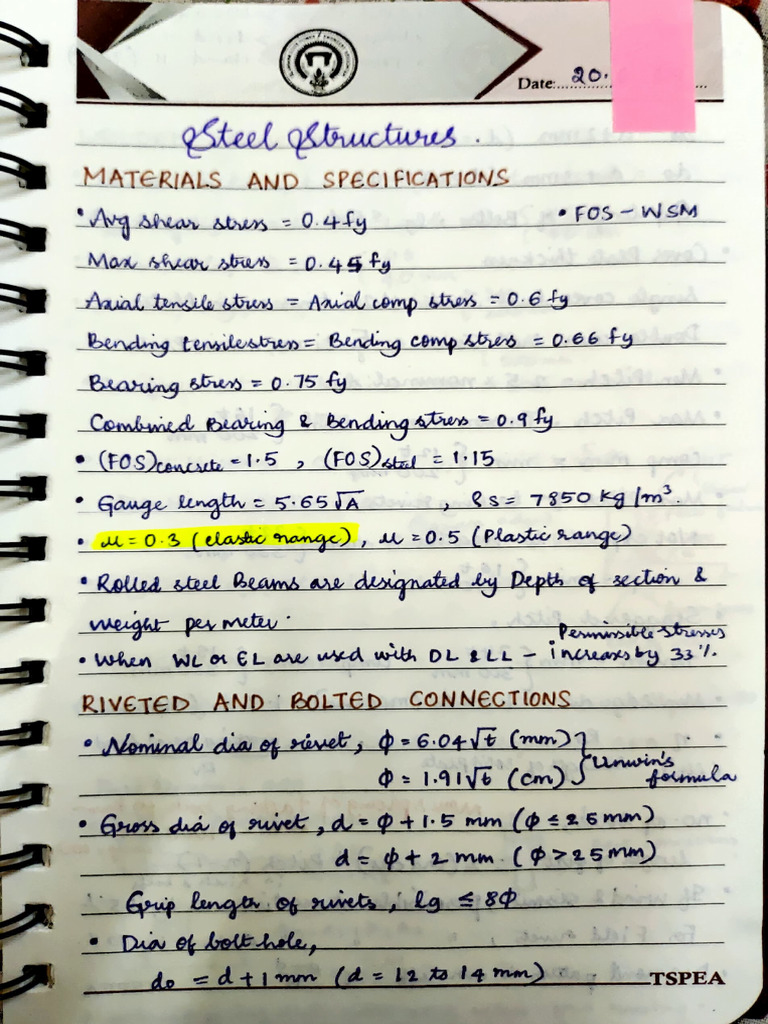 Date: 20.
Steel Structures.
MATERIALS AND SPECIFICATIONS
• Avg shear stress = 0.4 fy • FOS – WSM
Max shear stress = 0.45 fy
Axial tensile stress = Axial comp stress = 0.6 fy
Bending tensile stress = Bending comp stress = 0.66 fy
Bearing stress = 0.75 fy
Combined Bearing & Bending stress = 0.9 fy
• (FOS)concrete = 1.5 , (FOS)steel = 1.15
• Gauge length = 5.65 √A , ρs = 7850 kg/m³.
• μ = 0.3 (elastic range), μ = 0.5 (Plastic range)
• Rolled steel Beams are designated by Depth of section &
weight per meter.
• When WL or EL are used with DL & LL – Permissible stresses
increases by 33%.
RIVETED AND BOLTED CONNECTIONS
• Nominal dia of rivet, φ = 6.04√t (mm)
φ = 1.91√t (cm) } Unwin's
formula
• Gross dia of rivet, d = φ + 1.5 mm (φ ≤ 25 mm)
d = φ + 2 mm. (φ > 25 mm)
Grip length of rivets, lg ≤ 8φ
• Dia of bolt hole,
do = d + 1 mm (d = 12 to 14 mm)
TSPEA